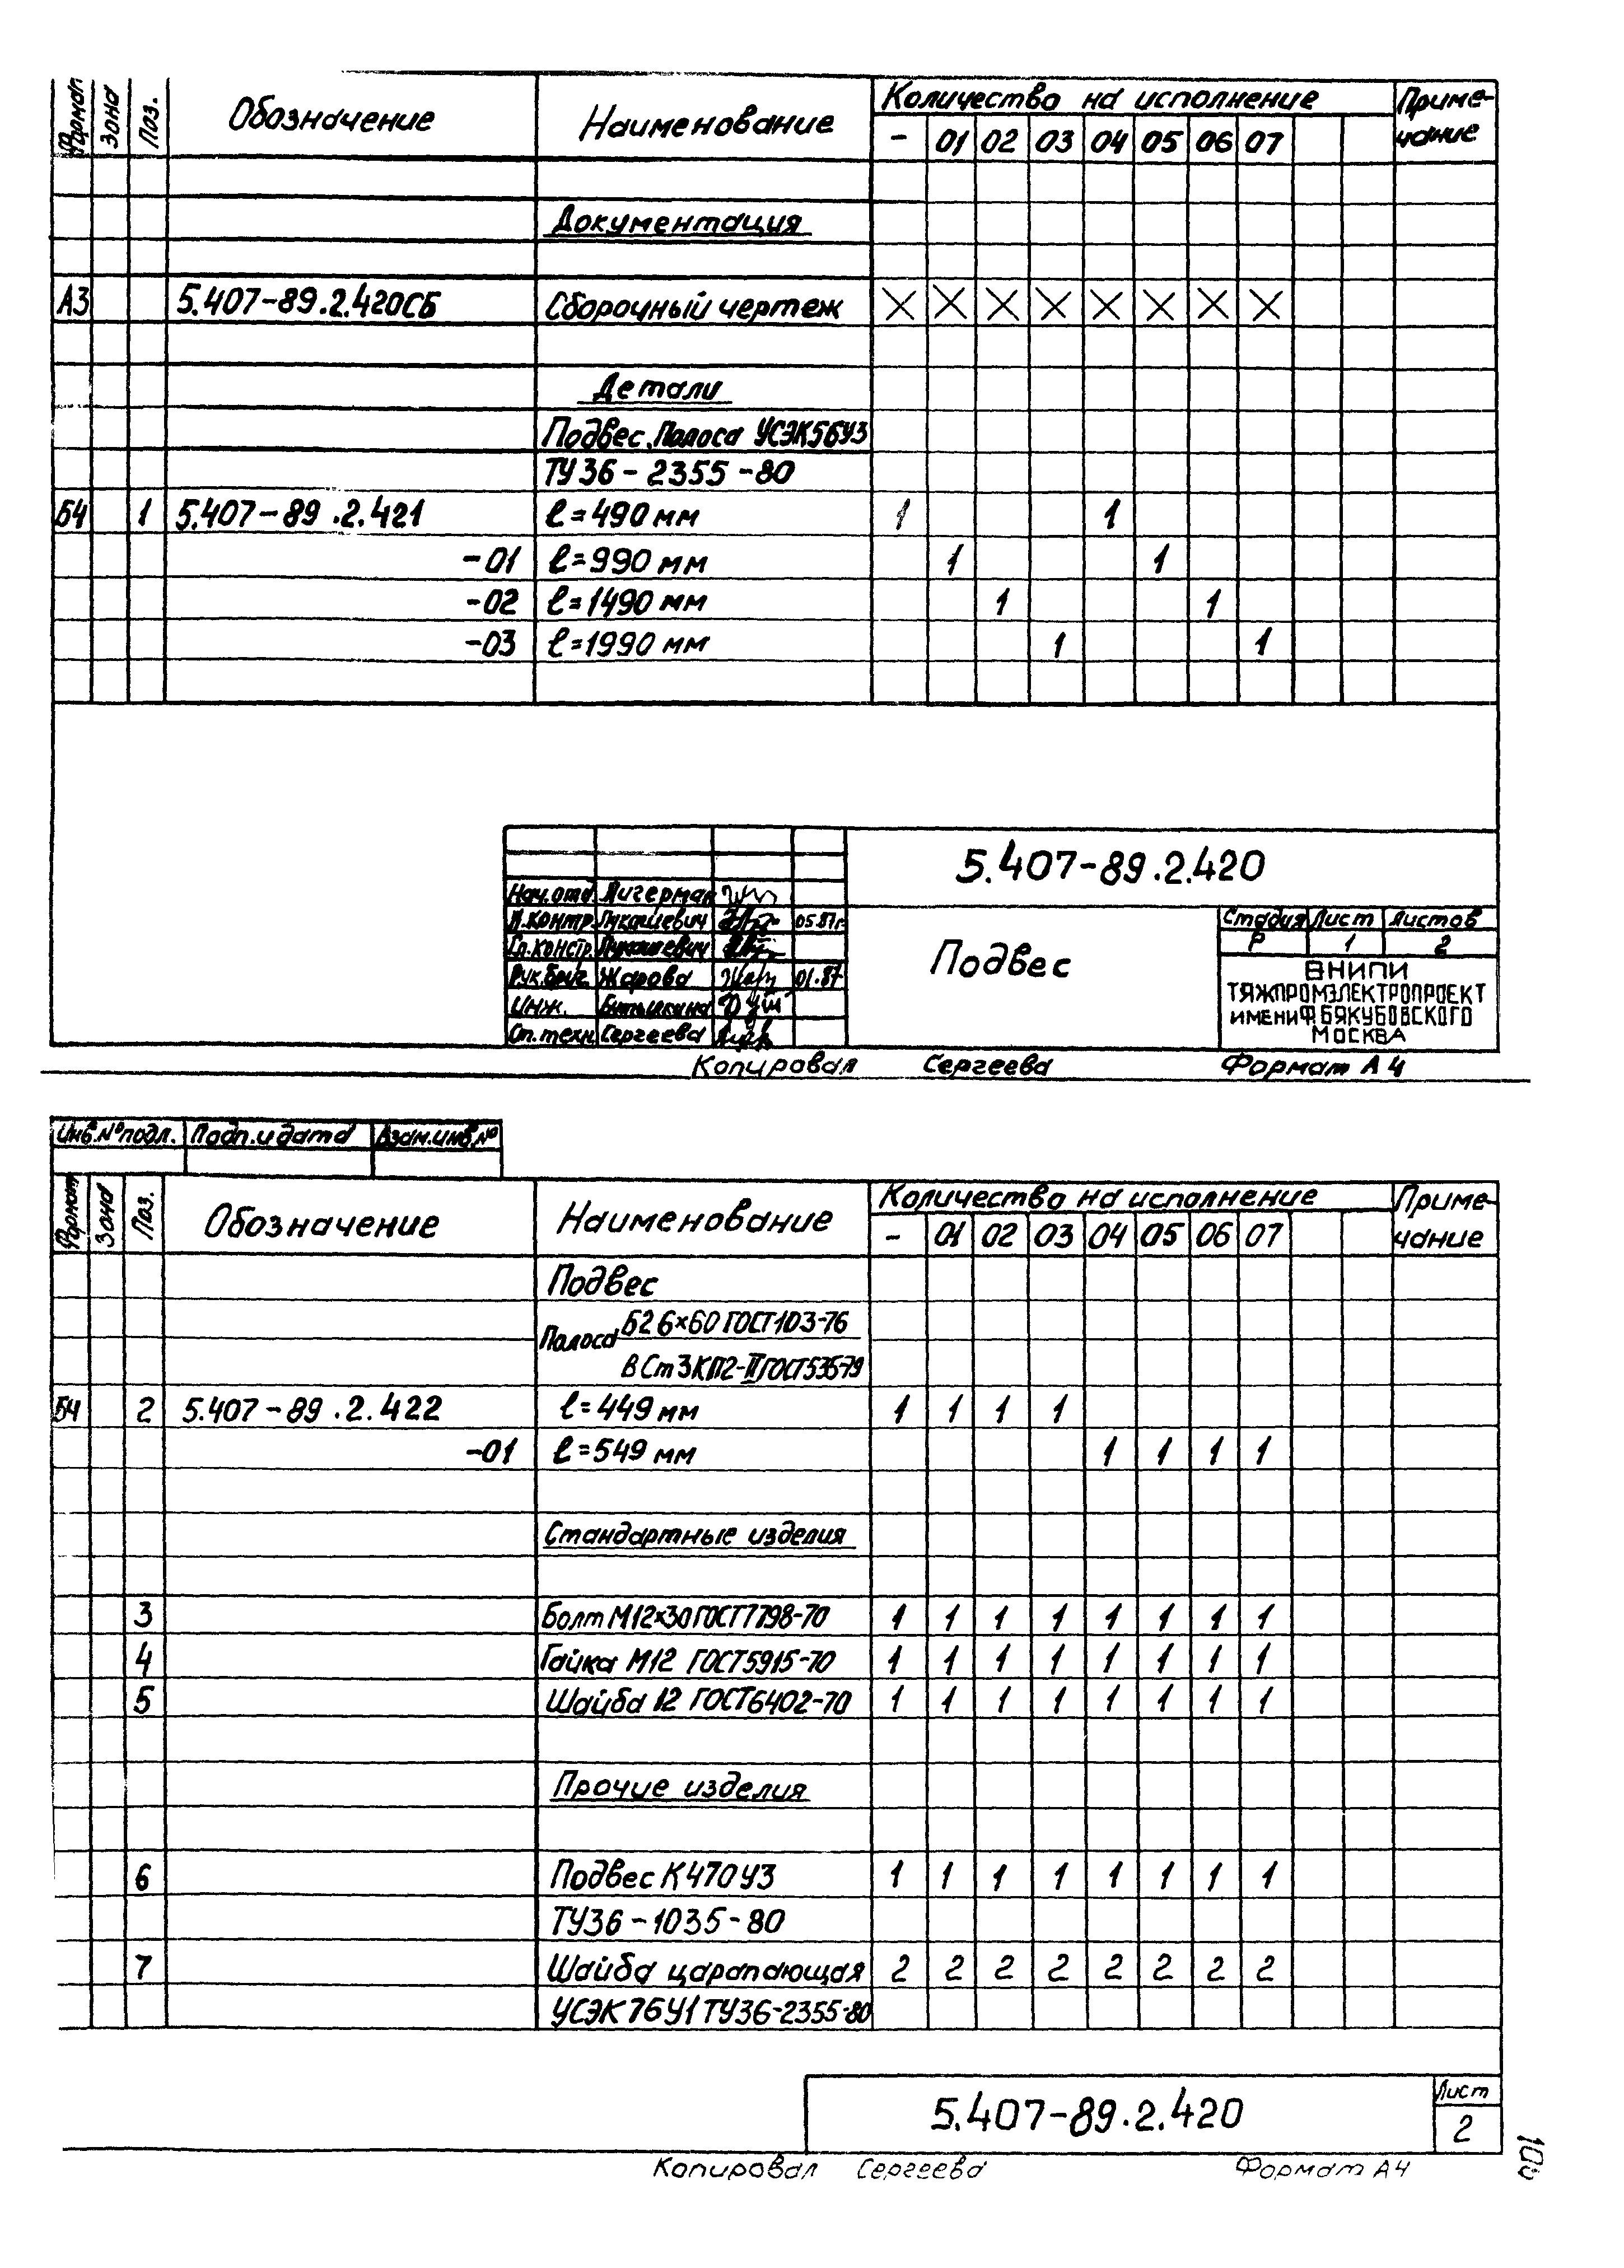 Формат Зона Поз. Обозначение Наименование Количество на исполнение Приме-
чание
- 01 02 03 04 05 06 07
Документация
А3 5.407-89.2.420СБ Сборочный чертеж X X X X X X X X
Детали
Подвес. Полоса УСЭК56У3
ТУ36-2355-80
Б4 1 5.407-89.2.421 ℓ=490 мм 1 1
-01 ℓ=990 мм 1 1
-02 ℓ=1490 мм 1 1
-03 ℓ=1990 мм 1 1
5.407-89.2.420
Нач.отд. Лигерман
Н.контр. Лукашевич 05.87г.
Гл.констр. Лукашевич
Рук.бриг. Жарова 01.87
Инж.
Ст.техн. Сергеева
Подвес
Стадия Лист Листов
Р 1 2
ВНИПИ
ТЯЖПРОМЭЛЕКТРОПРОЕКТ
ИМЕНИ Ф.Б.ЯКУБОВСКОГО
МОСКВА
Копировал Сергеева Формат А4
Инв.№подл. Подп.и дата Взам.инв.№
Формат Зона Поз. Обозначение Наименование Количество на исполнение Приме-
чание
- 01 02 03 04 05 06 07
Подвес
Полоса Б2 6×60 ГОСТ103-76
ВСт3КП2-II ГОСТ535-79
Б4 2 5.407-89.2.422 ℓ=449 мм 1 1 1 1
-01 ℓ=549 мм 1 1 1 1
Стандартные изделия
3 Болт М12×30 ГОСТ7798-70 1 1 1 1 1 1 1 1
4 Гайка М12 ГОСТ5915-70 1 1 1 1 1 1 1 1
5 Шайба 12 ГОСТ6402-70 1 1 1 1 1 1 1 1
Прочие изделия
6 Подвес К470У3 1 1 1 1 1 1 1 1
ТУ36-1035-80
7 Шайба царапающая 2 2 2 2 2 2 2 2
УСЭК76У1 ТУ36-2355-80
5.407-89.2.420
Лист
2
Копировал Сергеева Формат А4